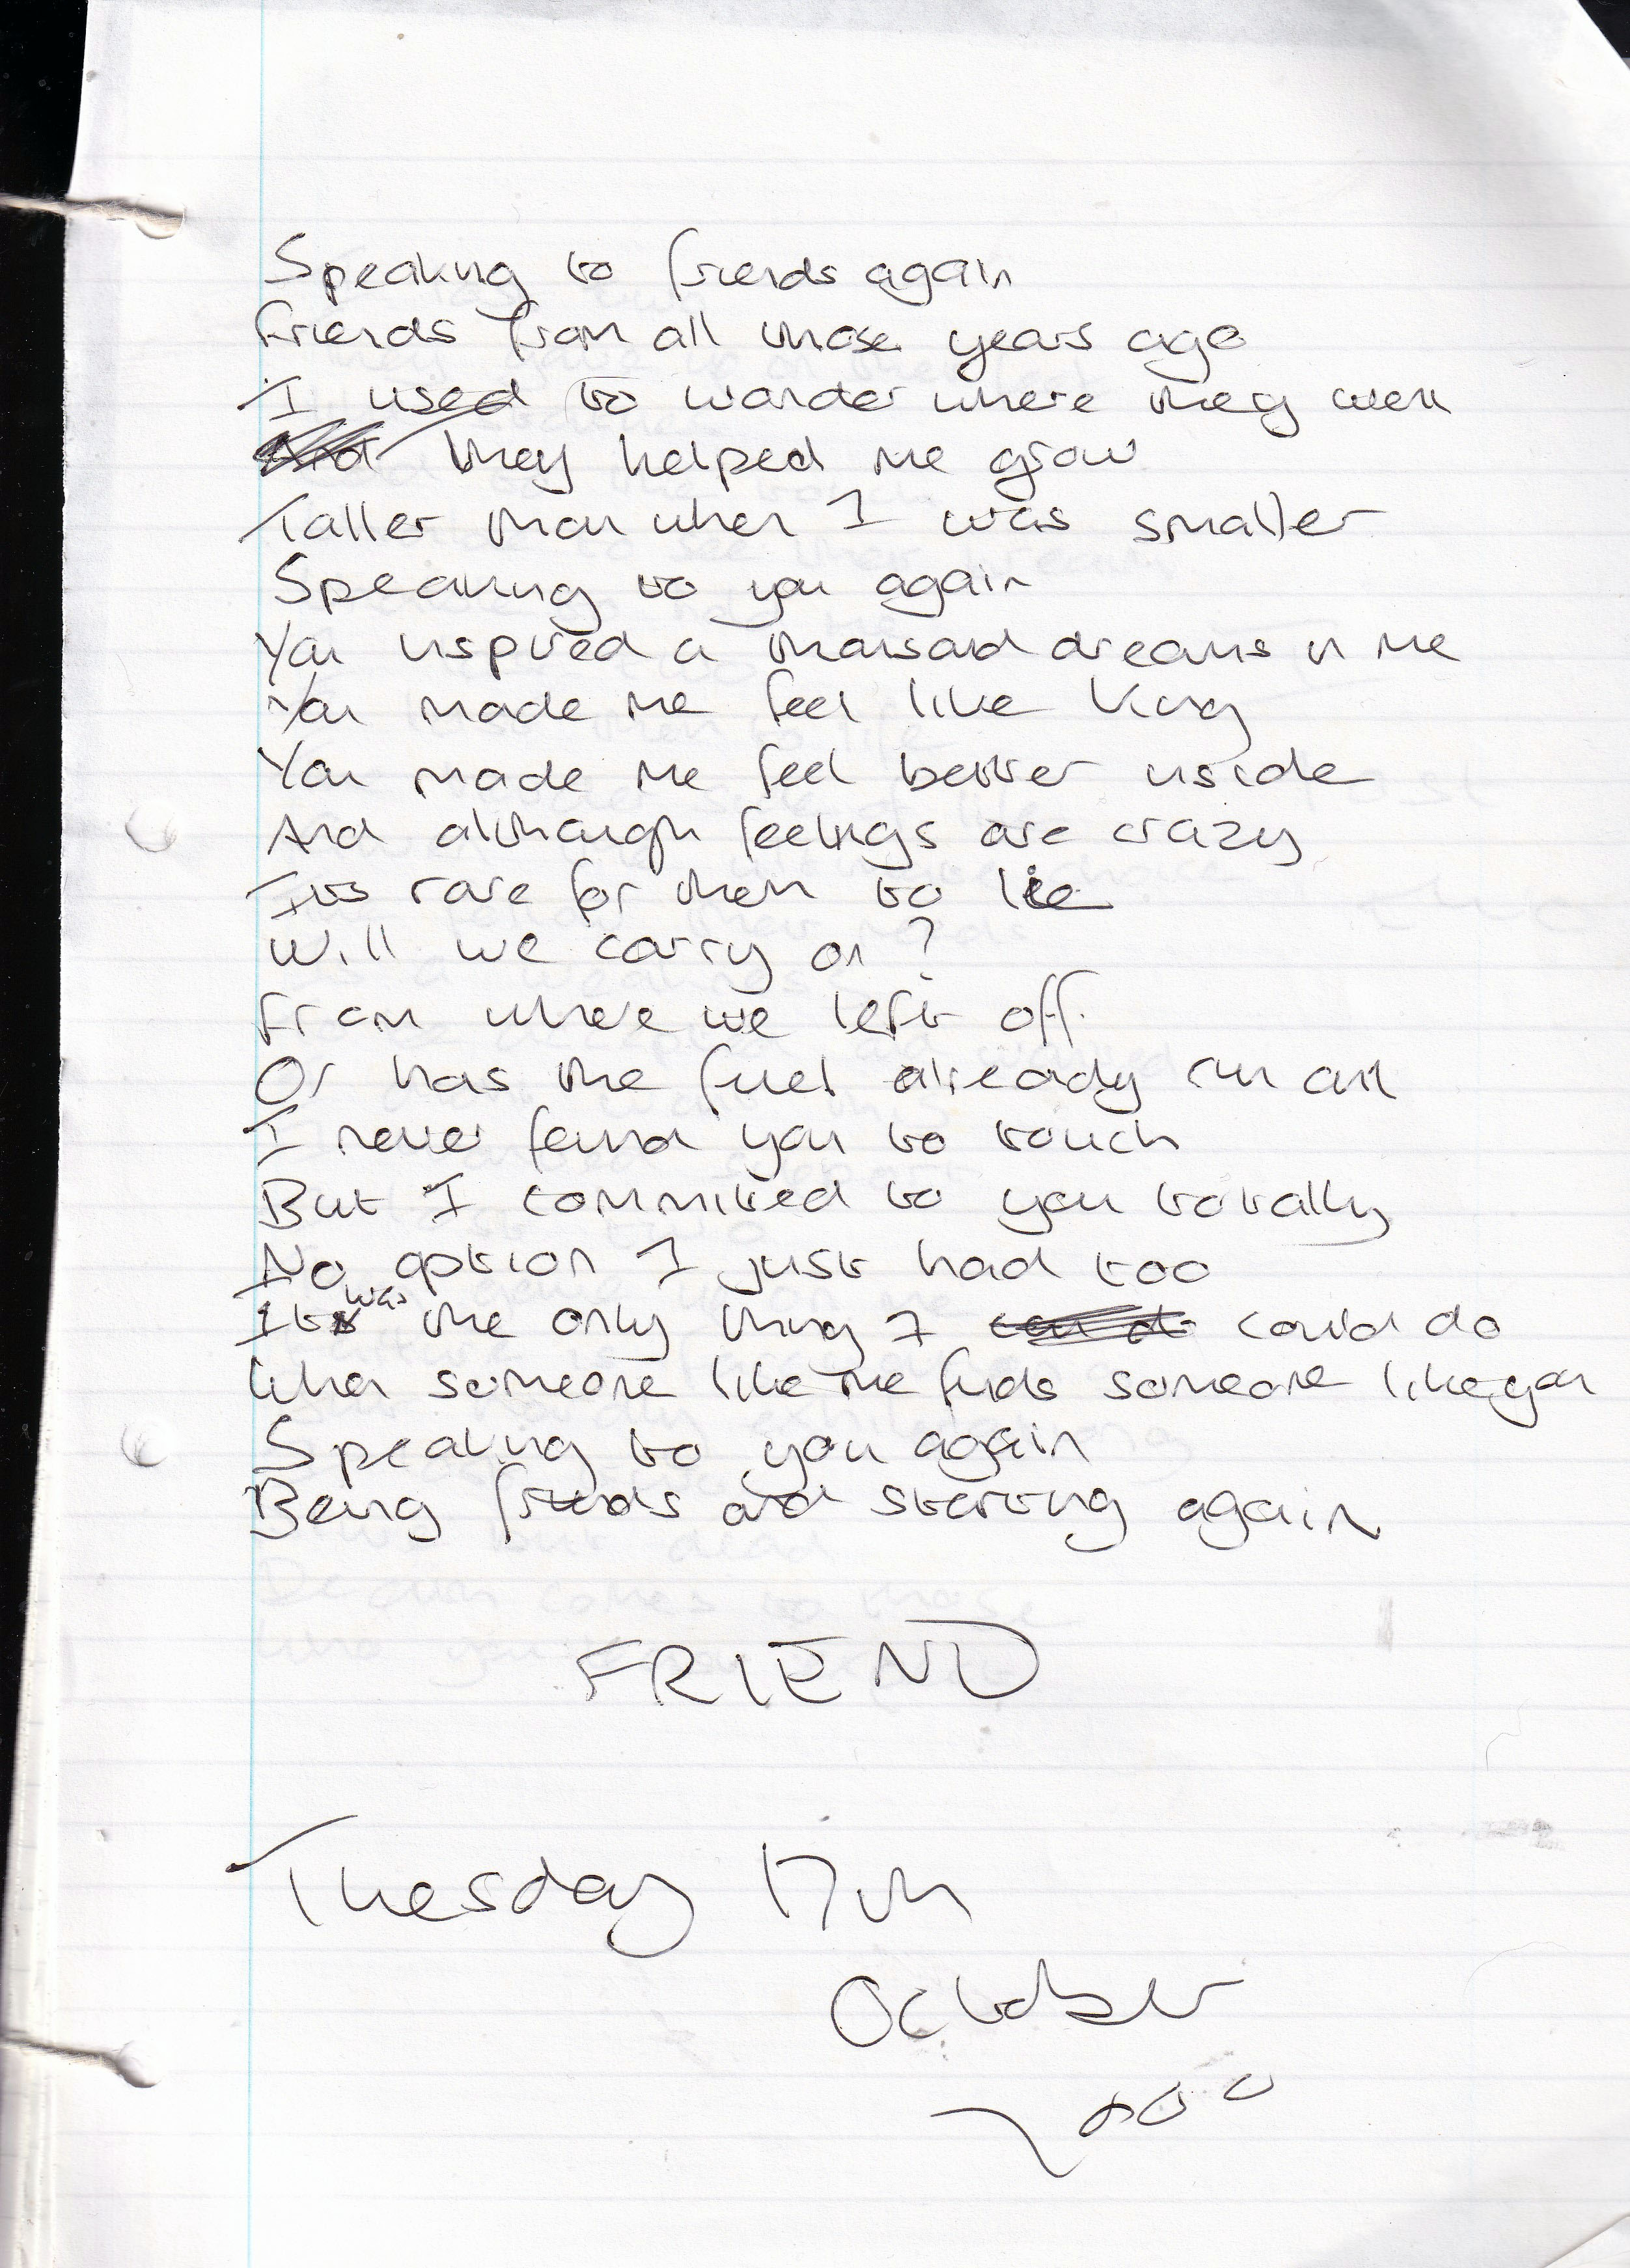 Speaking to friends again
Friends from all those years ago
I used to wonder where they went
And they helped me grow
Taller than when I was smaller
Speaking to you again
You inspired a thousand dreams in me
You made me feel like King
You made me feel better inside
And although feelings are crazy
Its rare for them to lie
Will we carry on?
From where we left off.
Or has the fuel already run out
I never found you to touch
But I commited to you totally
No option I just had too
It was the only thing I can do could do
When someone like me finds someone like you
Speaking to you again
Being friends and starting again
FRIEND
Tuesday 17th
October
2000